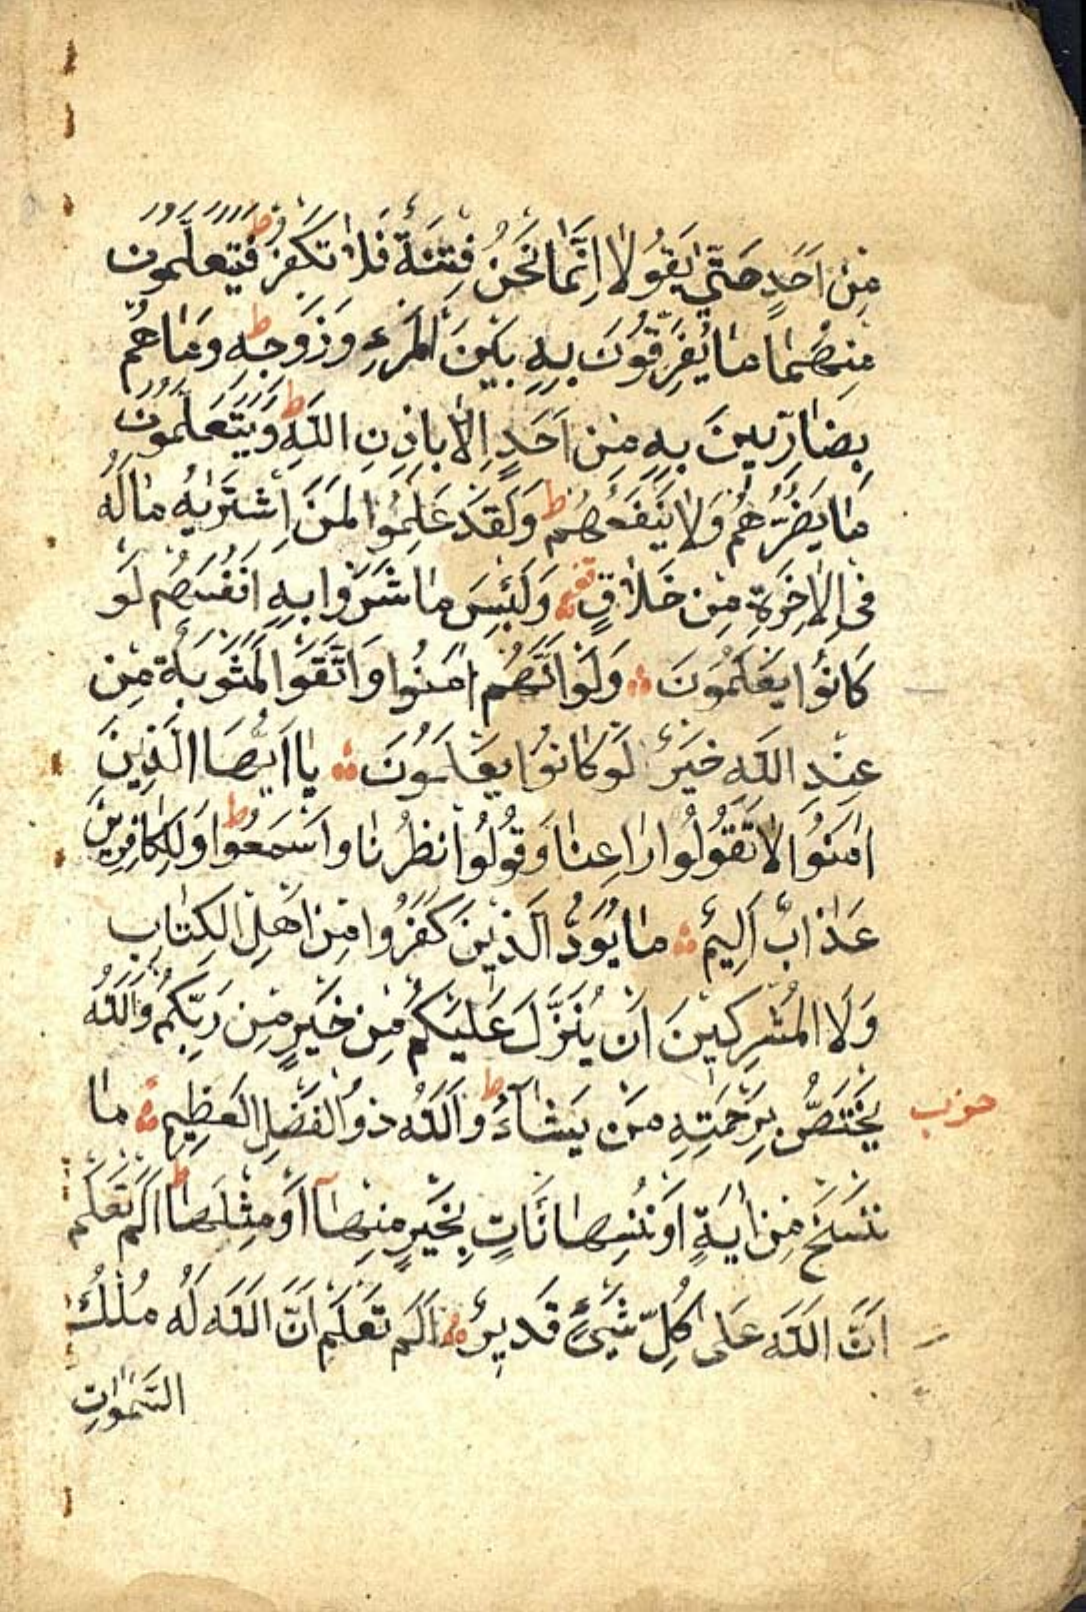 مِنْ اَحَدٍ حَتّٰى يَقُولَا اِنَّمَا نَحْنُ فِتْنَةٌ فَلَا تَكْفُرْ ط فَيَتَعَلَّمُونَ
مِنْهُمَا مَا يُفَرِّقُونَ بِهِ بَيْنَ الْمَرْءِ وَزَوْجِهِ ط وَمَا هُمْ
بِضَارِّينَ بِهِ مِنْ اَحَدٍ اِلَّا بِاِذْنِ اللّٰهِ ط وَيَتَعَلَّمُونَ
مَا يَضُرُّهُمْ وَلَا يَنْفَعُهُمْ ط وَلَقَدْ عَلِمُوا لَمَنِ اشْتَرٰيهُ مَا لَهُ
فِى الْاٰخِرَةِ مِنْ خَلَاقٍ وَلَبِئْسَ مَا شَرَوْا بِهِ اَنْفُسَهُمْ لَوْ
كَانُوا يَعْلَمُونَ وَلَوْ اَنَّهُمْ اٰمَنُوا وَاتَّقَوْا لَمَثُوبَةٌ مِنْ
عِنْدِ اللّٰهِ خَيْرٌ لَوْ كَانُوا يَعْلَمُونَ يَا اَيُّهَا الَّذِينَ
اٰمَنُوا لَا تَقُولُوا رَاعِنَا وَقُولُوا انْظُرْنَا وَاسْمَعُوا ط وَلِلْكَافِرِينَ
عَذَابٌ اَلِيمٌ مَا يَوَدُّ الَّذِينَ كَفَرُوا مِنْ اَهْلِ الْكِتَابِ
وَلَا الْمُشْرِكِينَ اَنْ يُنَزَّلَ عَلَيْكُمْ مِنْ خَيْرٍ مِنْ رَبِّكُمْ وَاللّٰهُ
يَخْتَصُّ بِرَحْمَتِهِ مَنْ يَشَآءُ ط وَاللّٰهُ ذُو الْفَضْلِ الْعَظِيمِ مَا
حزب
نَنْسَخْ مِنْ اٰيَةٍ اَوْ نُنْسِهَا نَأْتِ بِخَيْرٍ مِنْهَآ اَوْ مِثْلِهَا ط اَلَمْ تَعْلَمْ
اَنَّ اللّٰهَ عَلٰى كُلِّ شَيْءٍ قَدِيرٌ اَلَمْ تَعْلَمْ اَنَّ اللّٰهَ لَهُ مُلْكُ
السَّمٰوَاتِ